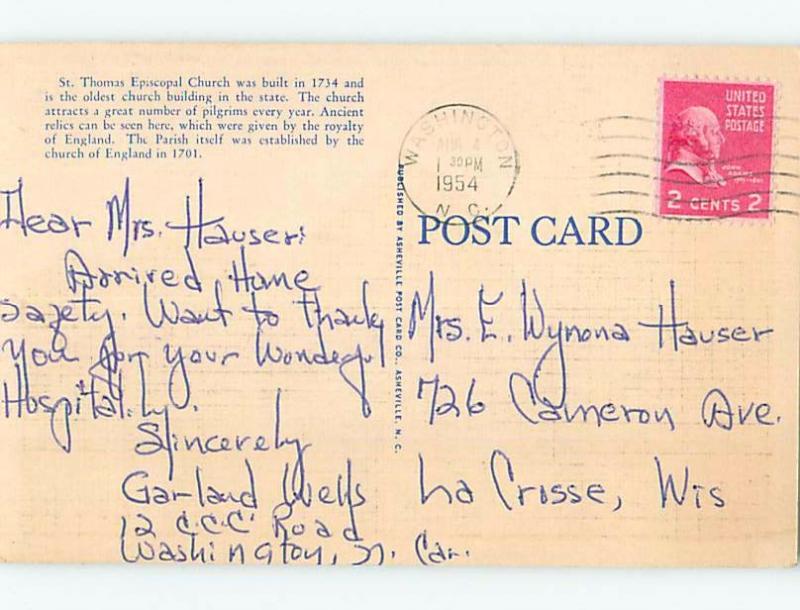 St. Thomas Episcopal Church was built in 1734 and
is the oldest church building in the state. The church
attracts a great number of pilgrims every year. Ancient
relics can be seen here, which were given by the royalty
of England. The Parish itself was established by the
church of England in 1701.
WASHINGTON
1 30 PM
1954
N. C.
UNITED
STATES
POSTAGE
JOHN
ADAMS
2 CENTS 2
PUBLISHED BY ASHEVILLE POST CARD CO., ASHEVILLE, N. C.
POST CARD
Dear Mrs. Hauser:
Arrived Home
Safety. Want to Thank
You for your Wonderful
Hospitality.
Sincerely
Garland Wells
12 C.C.C. Road
Washington, N. Car.
Mrs. E. Wynona Hauser
726 Cameron Ave.
La Crosse, Wis